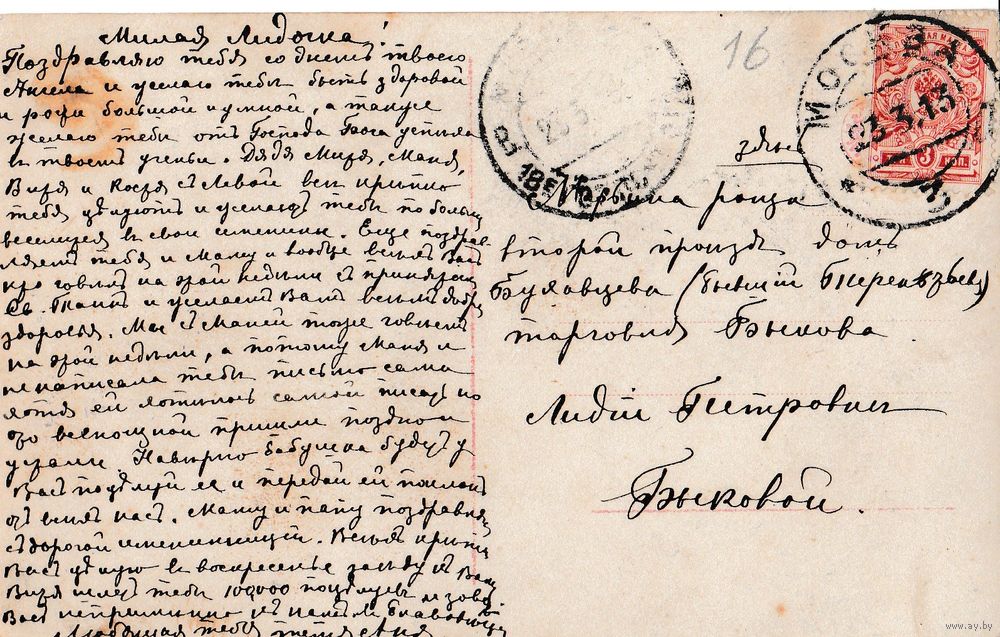 Милая Лидочка!
Поздравляю тебя со днемъ твоего
Ангела и желаю тебѣ быть здоровой
и рости большой и умной, а также
желаю тебѣ отъ Господа Бога успѣха
въ твоемъ ученьи. Дядя Миша, Маня,
Витя и Костя съ Левой всѣ крѣпко
тебя цѣлуютъ и желаютъ тебѣ по больше
веселиться въ свои имянины. Еще поздрав
ляемъ тебя и Маму и вообще всѣхъ Васъ
кто говѣлъ на этой недѣли съ принятіемъ
Св. Таинъ и желаемъ Вамъ всѣмъ добра
здоровья. Мы съ Маней тоже говѣемъ
на этой недѣли, а потому Маня и
не написала тебѣ письмо сама
хотя ей хотѣлось самой писать но
отъ всенощной пришли поздно и
устали. Навѣрно бабушка будетъ у
Васъ поцѣлуй ее и передай ей поклонъ
отъ всѣхъ насъ. Маму и папу поздравляемъ
съ дорогой имениницей. Всѣхъ крѣпко
Васъ цѣлую въ воскресенье заѣду къ Вамъ
Витя шлетъ тебѣ 100,000 поцѣлуевъ и зоветъ
Васъ непремѣнно къ намъ
Любящая тебя тетя
16
МОСКВА
23.3.13
3 КОП.
здѣсь
Марьина роща
второй проездъ домъ
Булавцева (бывшій
торговля Быкова
Лидіи Петровнѣ
Быковой.
www.ay.by